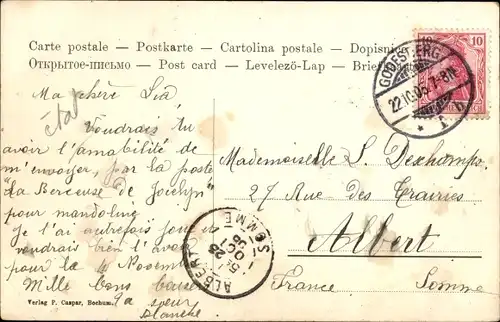 Carte postale — Postkarte — Cartolina postale — Dopisnice
Открытое-письмо — Post card — Levelező-Lap — Brief
10
GODESBERG
22.10.05. 7-8N
Ma chère Léa
Voudrais tu
avoir l'amabilité de
m'envoyer, par la poste
"La Berceuse de Jocelyn"
pour mandoline
je l'ai autrefois joué
voudrais bien l'avoir
pour le 4 Novembre
Mille bons baisers
Ta sœur
Blanche
Mademoiselle L. Dechamps
27 Rue des
Albert
France Somme
ALBERT
SOMME
Verlag P. Caspar, Bochum.